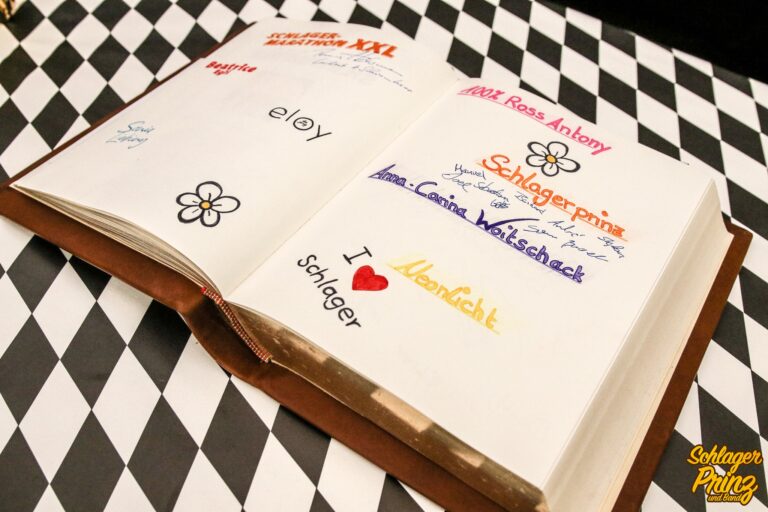 SCHLAGER-
MARATHON XXL
Beatrice
Egli
eloy
100% Ross Antony
Schlagerprinz
Anna-Carina Woitschack
I ❤
Schlager
Neonlicht
Schlager
Prinz
und Band